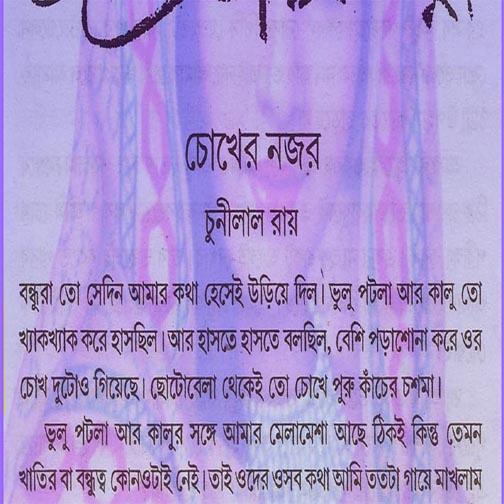 চোখের নজর
চুনীলাল রায়
বন্ধুরা তো সেদিন আমার কথা হেসেই উড়িয়ে দিল। ভুলু পটলা আর কালু তো
খ্যাকখ্যাক করে হাসছিল। আর হাসতে হাসতে বলছিল, বেশি পড়াশোনা করে ওর
চোখ দুটোও গিয়েছে। ছোটোবেলা থেকেই তো চোখে পুরু কাঁচের চশমা।
ভুলু পটলা আর কালুর সঙ্গে আমার মেলামেশা আছে ঠিকই কিন্তু তেমন
খাতির বা বন্ধুত্ব কোনওটাই নেই। তাই ওদের ওসব কথা আমি ততটা গায়ে মাখলাম